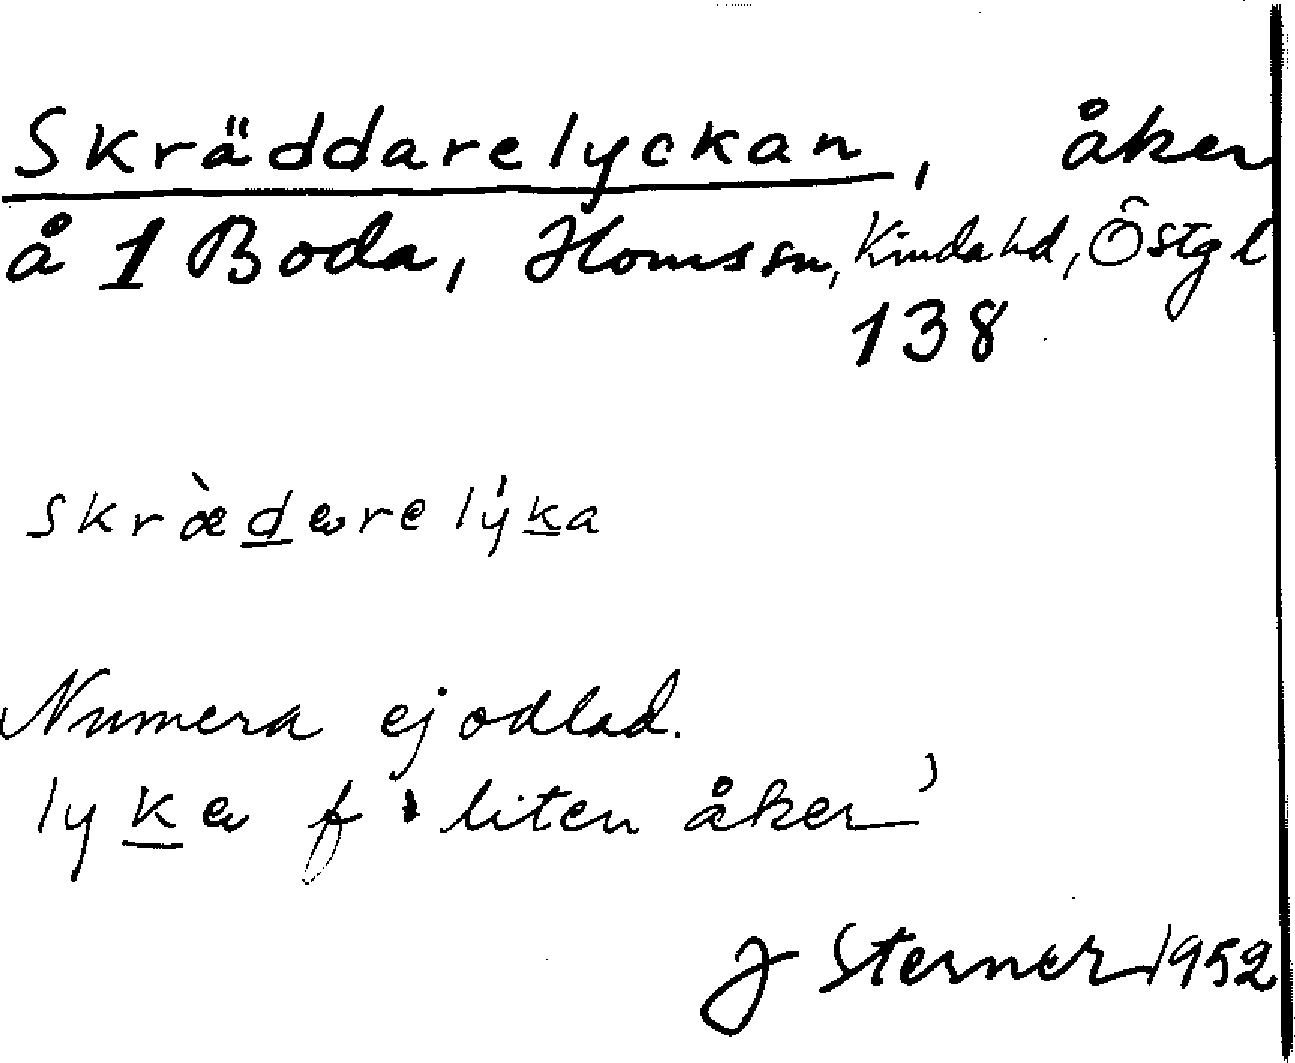 Skräddarelyckan, åker
å 1 Boda, Horns sn, Kinda hd, Östgl
138
skrædare lýka
Numera ej odlad.
lyka f 'liten åker'
J Sterner 1952